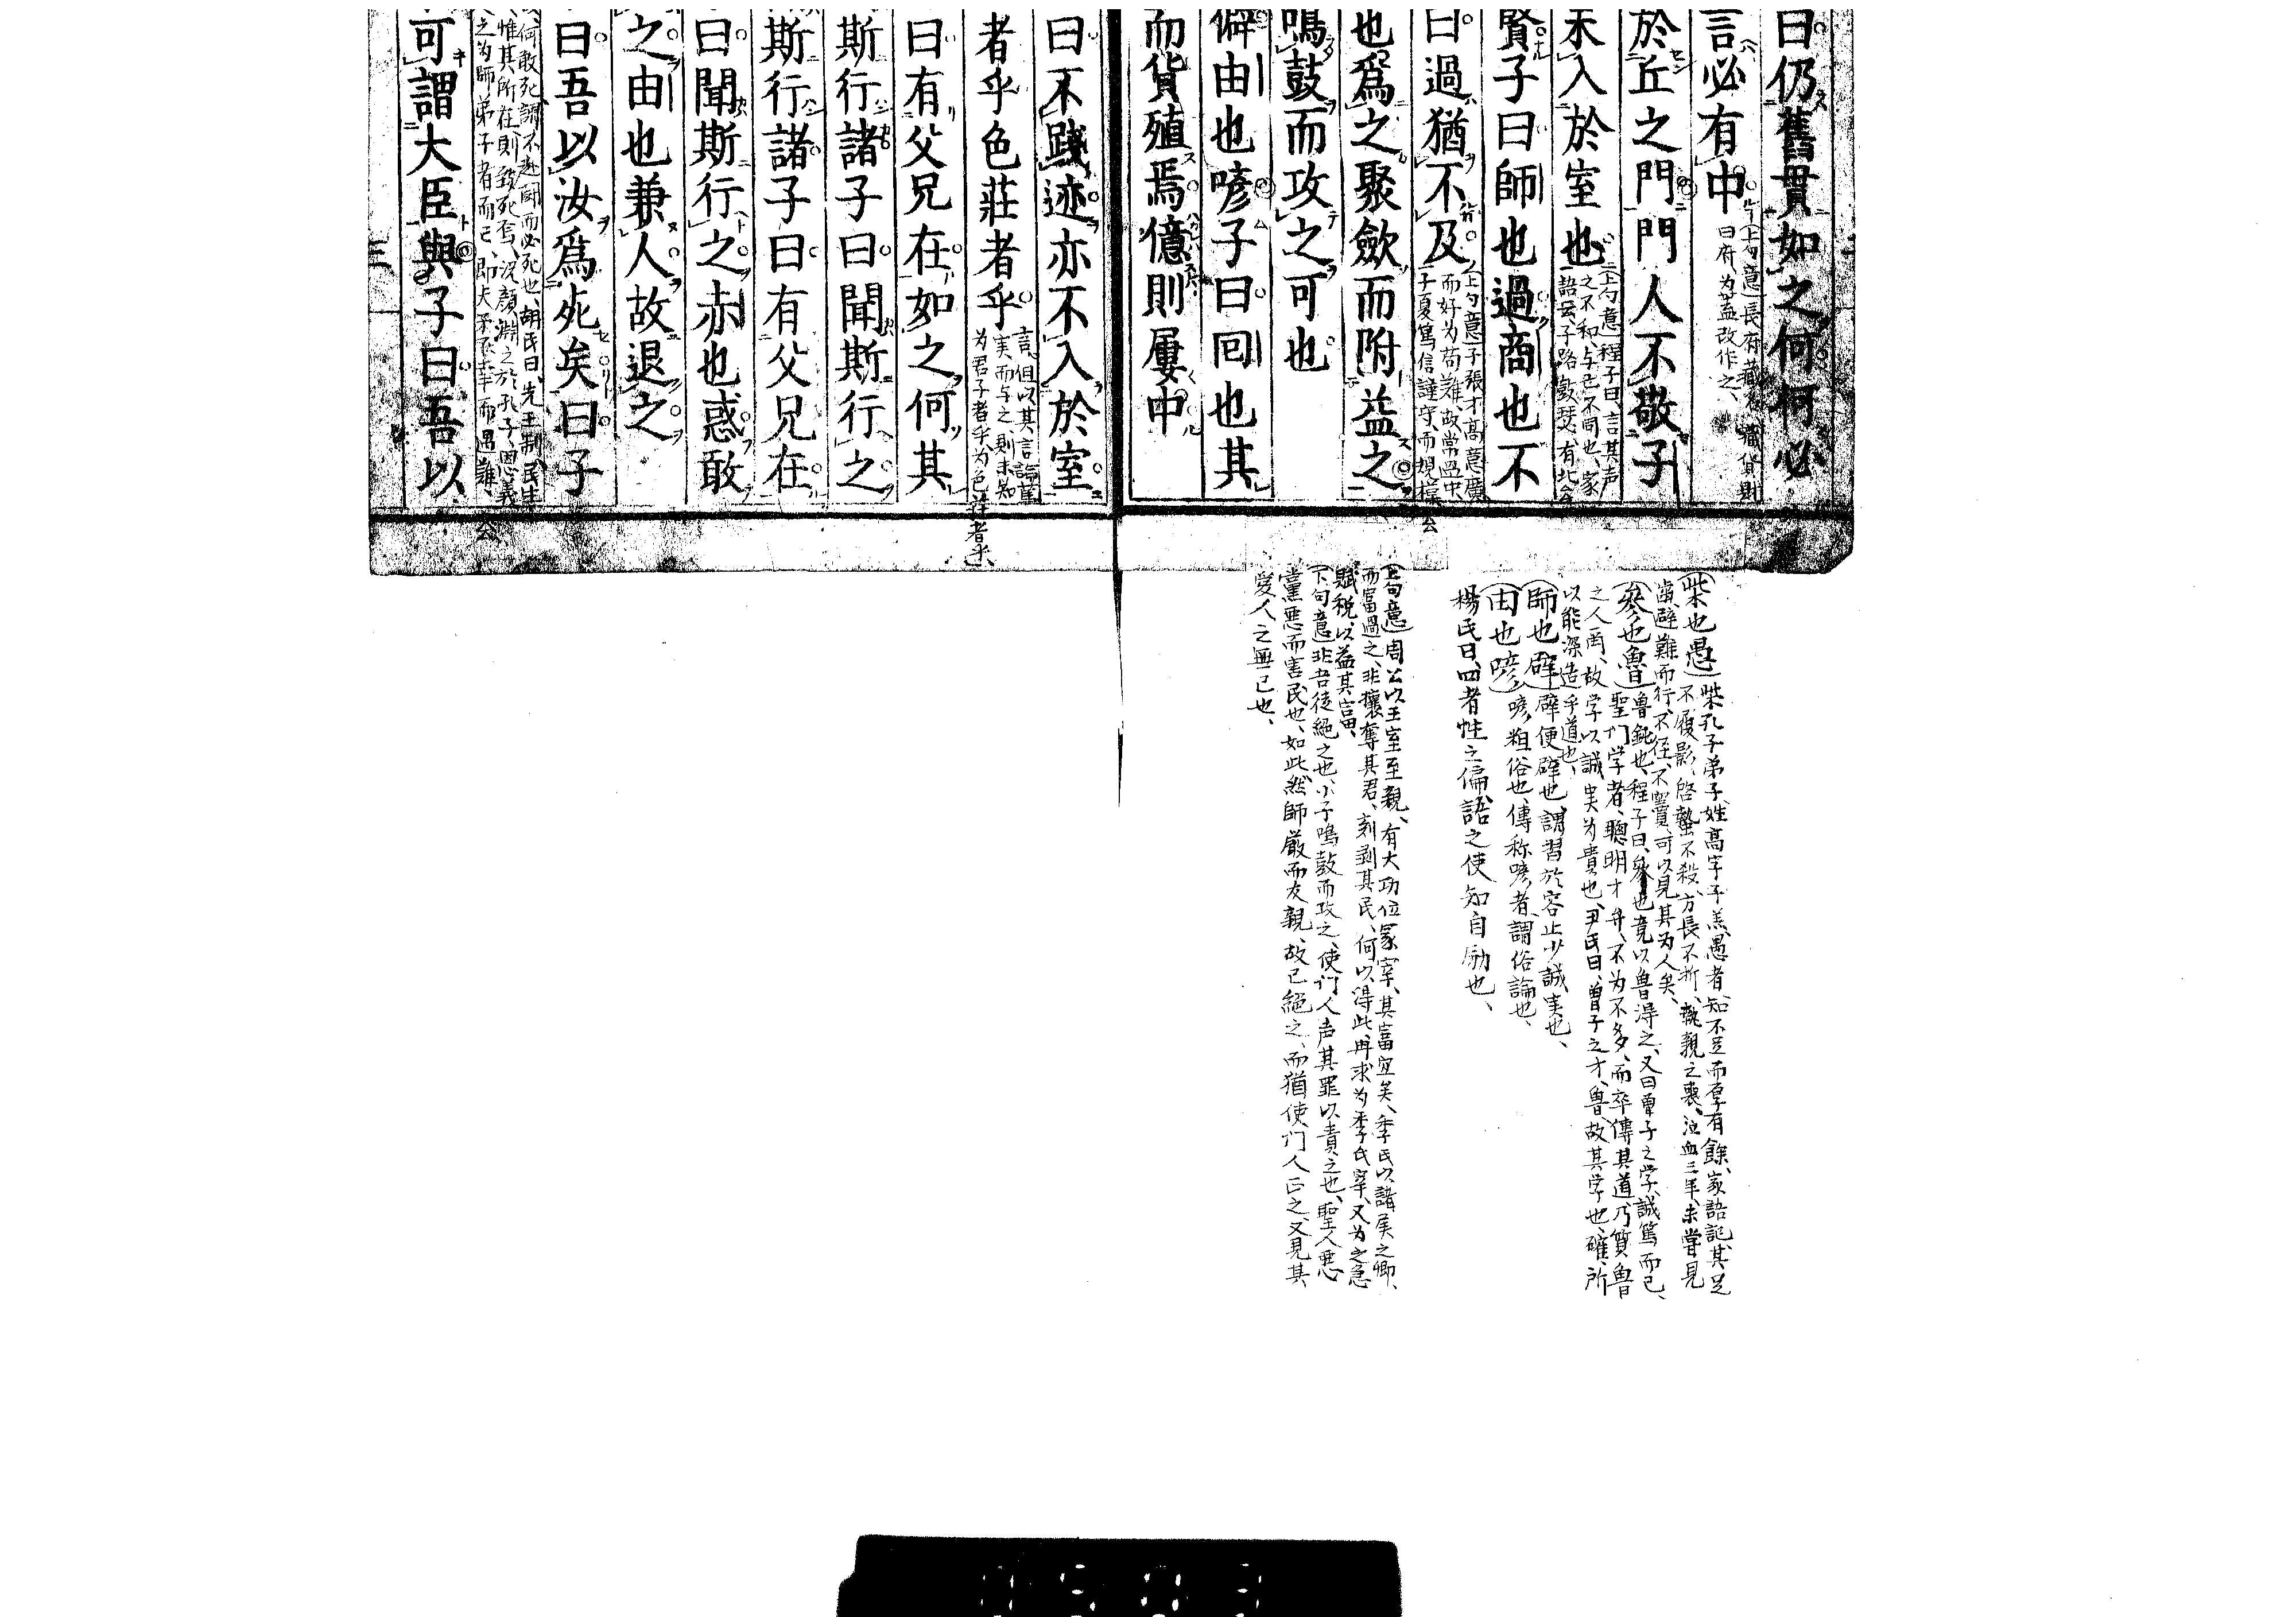 曰仍舊貫如之何何必
言必有中
上句意長府藏名藏貨財
曰府为蓋改作之
於丘之門門人不敬子
未入於室也
上句意程子曰言其声
之不和与己不同也家
語云子路鼓瑟有北鄙
賢子曰師也過商也不
曰過猶不及
上句意子張才高意廣
而好为苟難故常過中
子夏篤信謹守而規模
也爲之聚斂而附益之
鳴鼓而攻之可也
僻由也喭子曰回也其
而貨殖焉億則屢中
曰不踐迹亦不入於室
者乎色莊者乎
言但以其言論篤
実而与之則未知
为君子者乎为色莊者乎
曰有父兄在如之何其
斯行諸子曰聞斯行之
斯行諸子曰有父兄在
曰聞斯行之赤也惑敢
之由也兼人故退之
曰吾以汝爲死矣曰子
何敢死謂不赴闘而必死也胡民曰先王制民生
惟其所在則致死焉況顔淵之於孔子恩義
之为師弟子者而已即夫子不幸而遇難
可謂大臣與子曰吾以
柴也愚柴孔子弟子姓高字子羔愚者知不足而厚有餘家語記其足
不履影啓蟄不殺方長不折執親之喪泣血三年未嘗見
歯避難而行不径不竇可以見其为人矣
參也魯魯鈍也程子曰參也竟以魯得之又曰曽子之学誠篤而已
聖门学者聰明才弁不为不多而卒傳其道乃質魯
之人爾故学以誠実为貴也尹氏曰曽子之才魯故其学也確所
以能深造乎道也
師也辟辟便辟也謂習於容止少誠実也
由也喭喭粗俗也傳称喭者謂俗論也
楊氏曰四者性之偏語之使知自励也
上句意周公以王室至親有大功位冢宰其富宜矣季氏以諸侯之卿
而富過之非攘奪其君刻剥其民何以得此冉求为季氏宰又为之急
賦税以益其富
下句意非吾徒絕之也小子鳴鼓而攻之使门人声其罪以責之也聖人悪
黨悪而害民也如此然師厳而友親故已絕之而猶使门人正之又見其
愛人之無已也